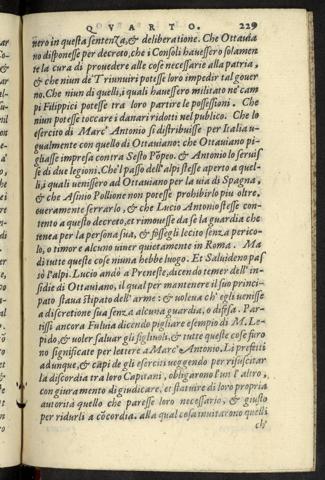 QVARTO. 229
nero in questa sentenza, & deliberatione. Che Ottauia
no disponesse per decreto, che i Consoli hauessero solamen
te la cura di prouedere alle cose necessarie alla patria,
& che niun de' Triunuiri potesse loro impedir tal gouer
no. Che niun di quelli, i quali hauessero militato ne' cam
pi Filippici potesse tra loro partire le possessioni. Che
niun potesse toccare i danari ridotti nel publico. Che lo
esercito di Marc' Antonio si distribuisse per Italia u-
gualmente con quello di Ottauiano: che Ottauiano pi-
gliasse impresa contra Sesto Põpeo. & Antonio lo seruis
se di due legioni. Che'l passo dell'alpi stesse aperto a quel-
li, i quali uenissero ad Ottauiano per la uia di Spagna,
& che Asinio Pollione non potesse prohibirlo piu oltre,
eueramente serrarlo, & che Lucio Antonio stesse con-
tento a questo decreto, et rimouesse da se la guardia che
tenea per la persona sua, & fossegli lecito senza perico-
lo, o timore alcuno uiuer quietamente in Roma. Ma
di tutte queste cose niuna hebbe luogo. Et Saluideno pas
sò l'alpi. Lucio andò a Preneste, dicendo temer dell'in-
sidie di Ottauiano, il qual per mantenere il suo princi-
pato staua stipato dell'arme: & uoleua ch'egli uenisse
a discretione sua senza alcuna guardia, o difesa. Par-
tissi ancora Fuluia dicendo pigliare esempio di M. Le-
pido, & uoler saluar gli figliuoli, & tutte queste cose furo
no significate per lettere a Marc' Antonio. Li prefetti
adunque, & capi de gli eserciti ueggendo per risuscitar
la discordia tra loro Capitani, obligarono l'un l'altro,
con giuramento di giudicare, et statuire di loro propria
autorità quello che paresse loro necessario, & giusto
per ridurli a cõcordia. alla qual cosa inuitarono quelli
ch'